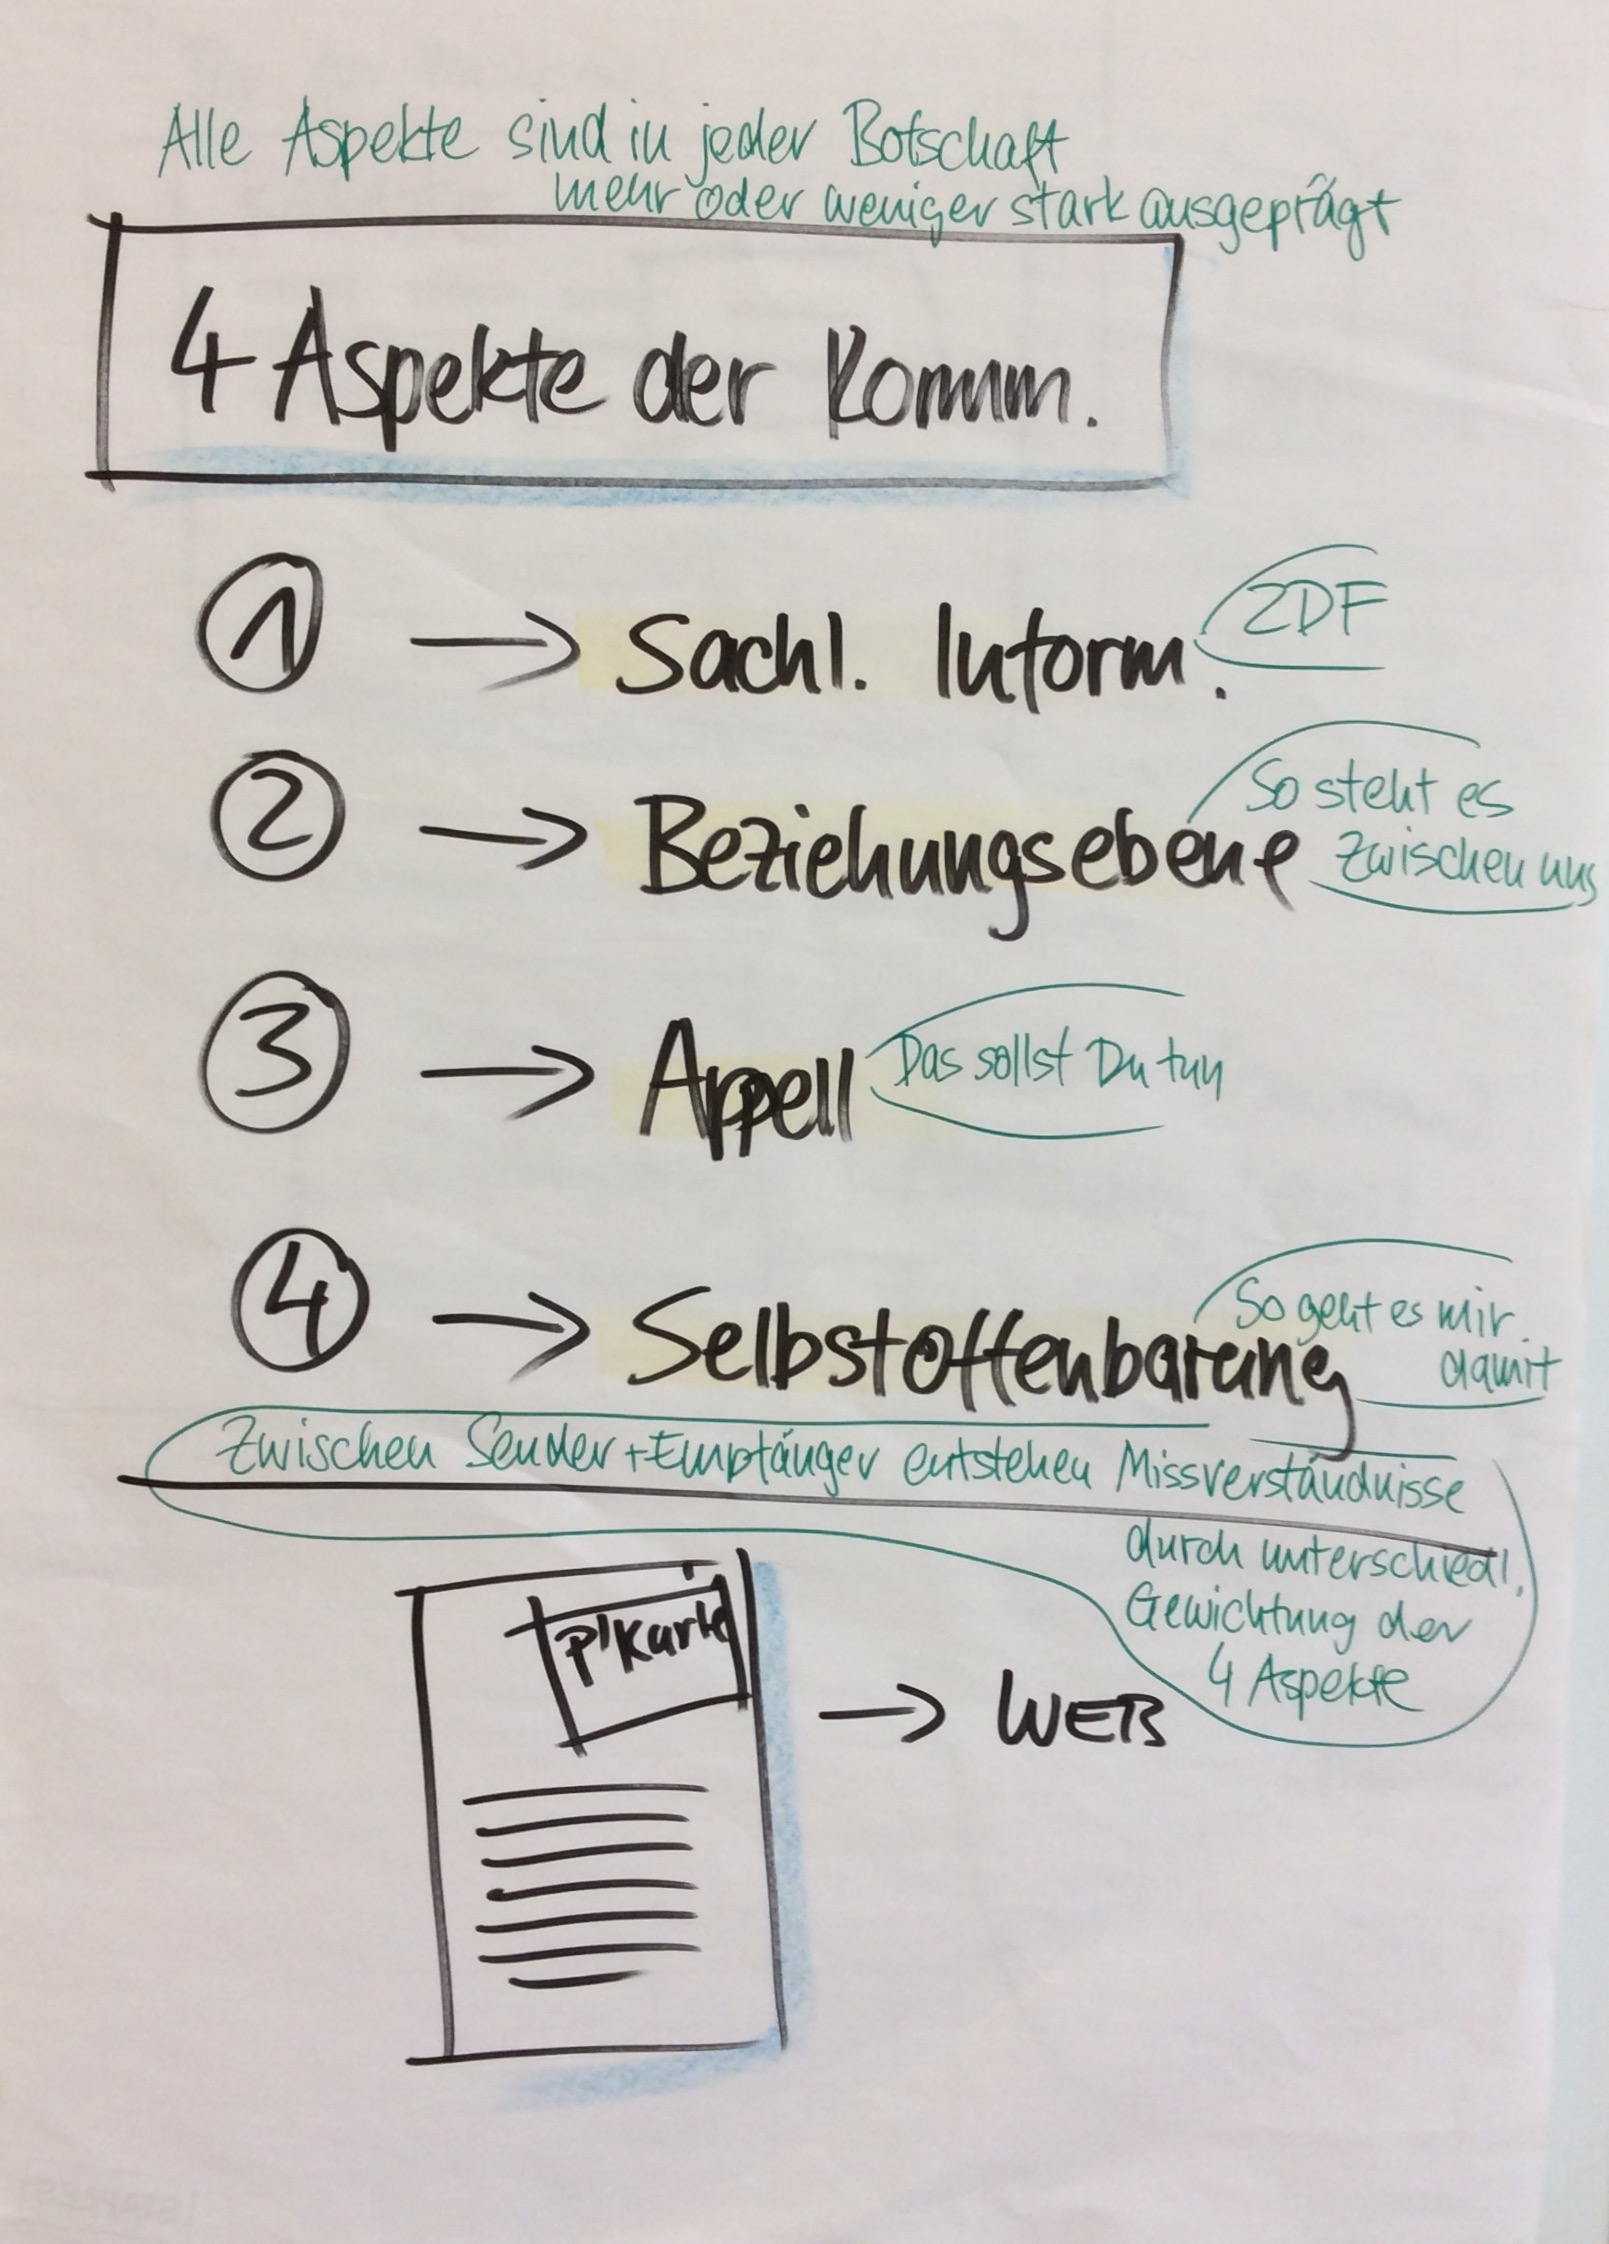 Alle Aspekte sind in jeder Botschaft
mehr oder weniger stark ausgeprägt
4 Aspekte der Komm.
1 → Sachl. Inform.
ZDF
2 → Beziehungsebene
So steht es
zwischen uns
3 → Appell
Das sollst Du tun
4 → Selbstoffenbarung
So geht es mir
damit
Zwischen Sender + Empfänger entstehen Missverständnisse
durch unterschiedl.
Gewichtung der
4 Aspekte
P'Karte
→ WEB